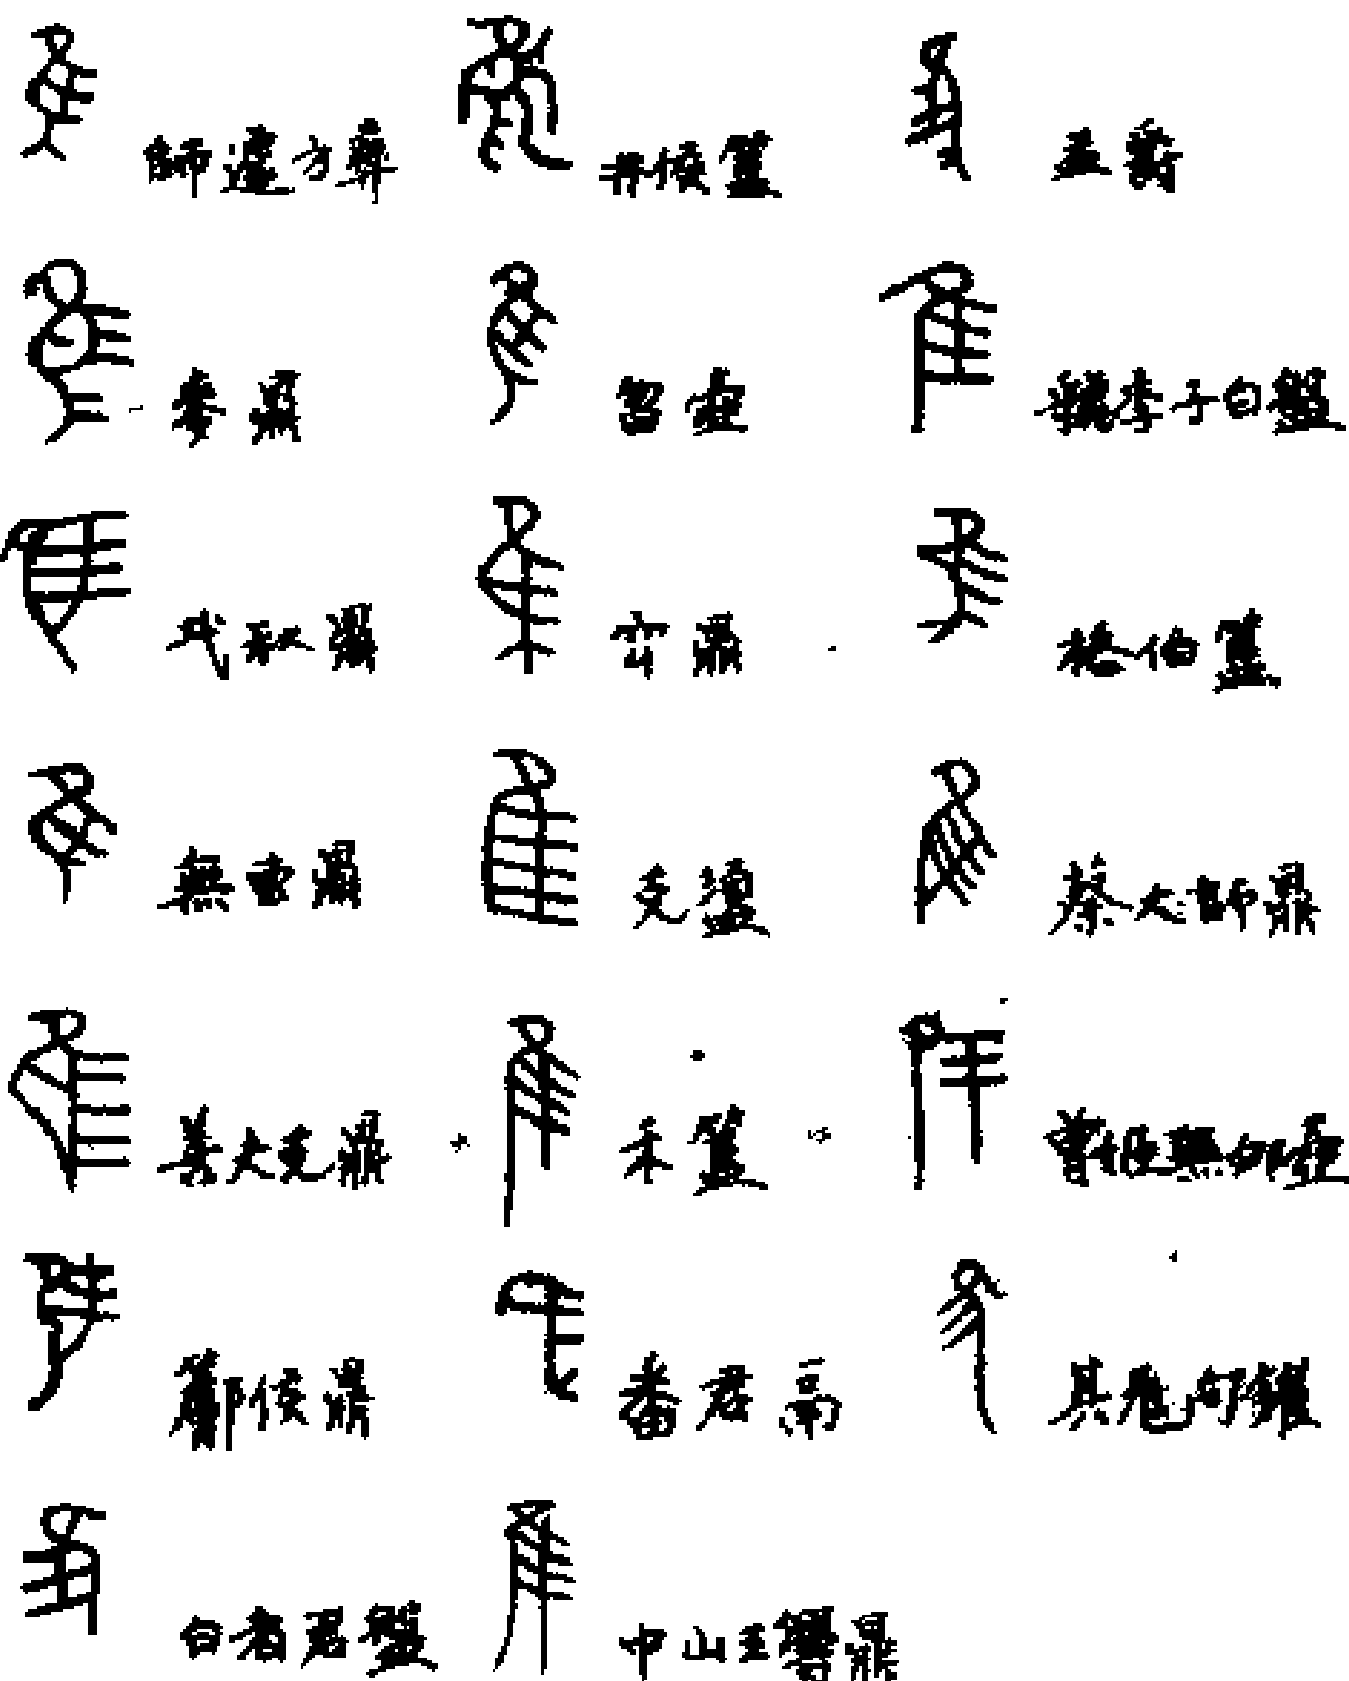 師遽方彝 井侯簋 盂爵
麥鼎 曶壺 虢季子白盤
鼎 鼎 格伯簋
無叀鼎 克盨 蔡大師鼎
善夫克鼎 禾簋 曾姬無卹壺
侯鼎 番君鬲 其句鑃
白者君盤 中山王鼎